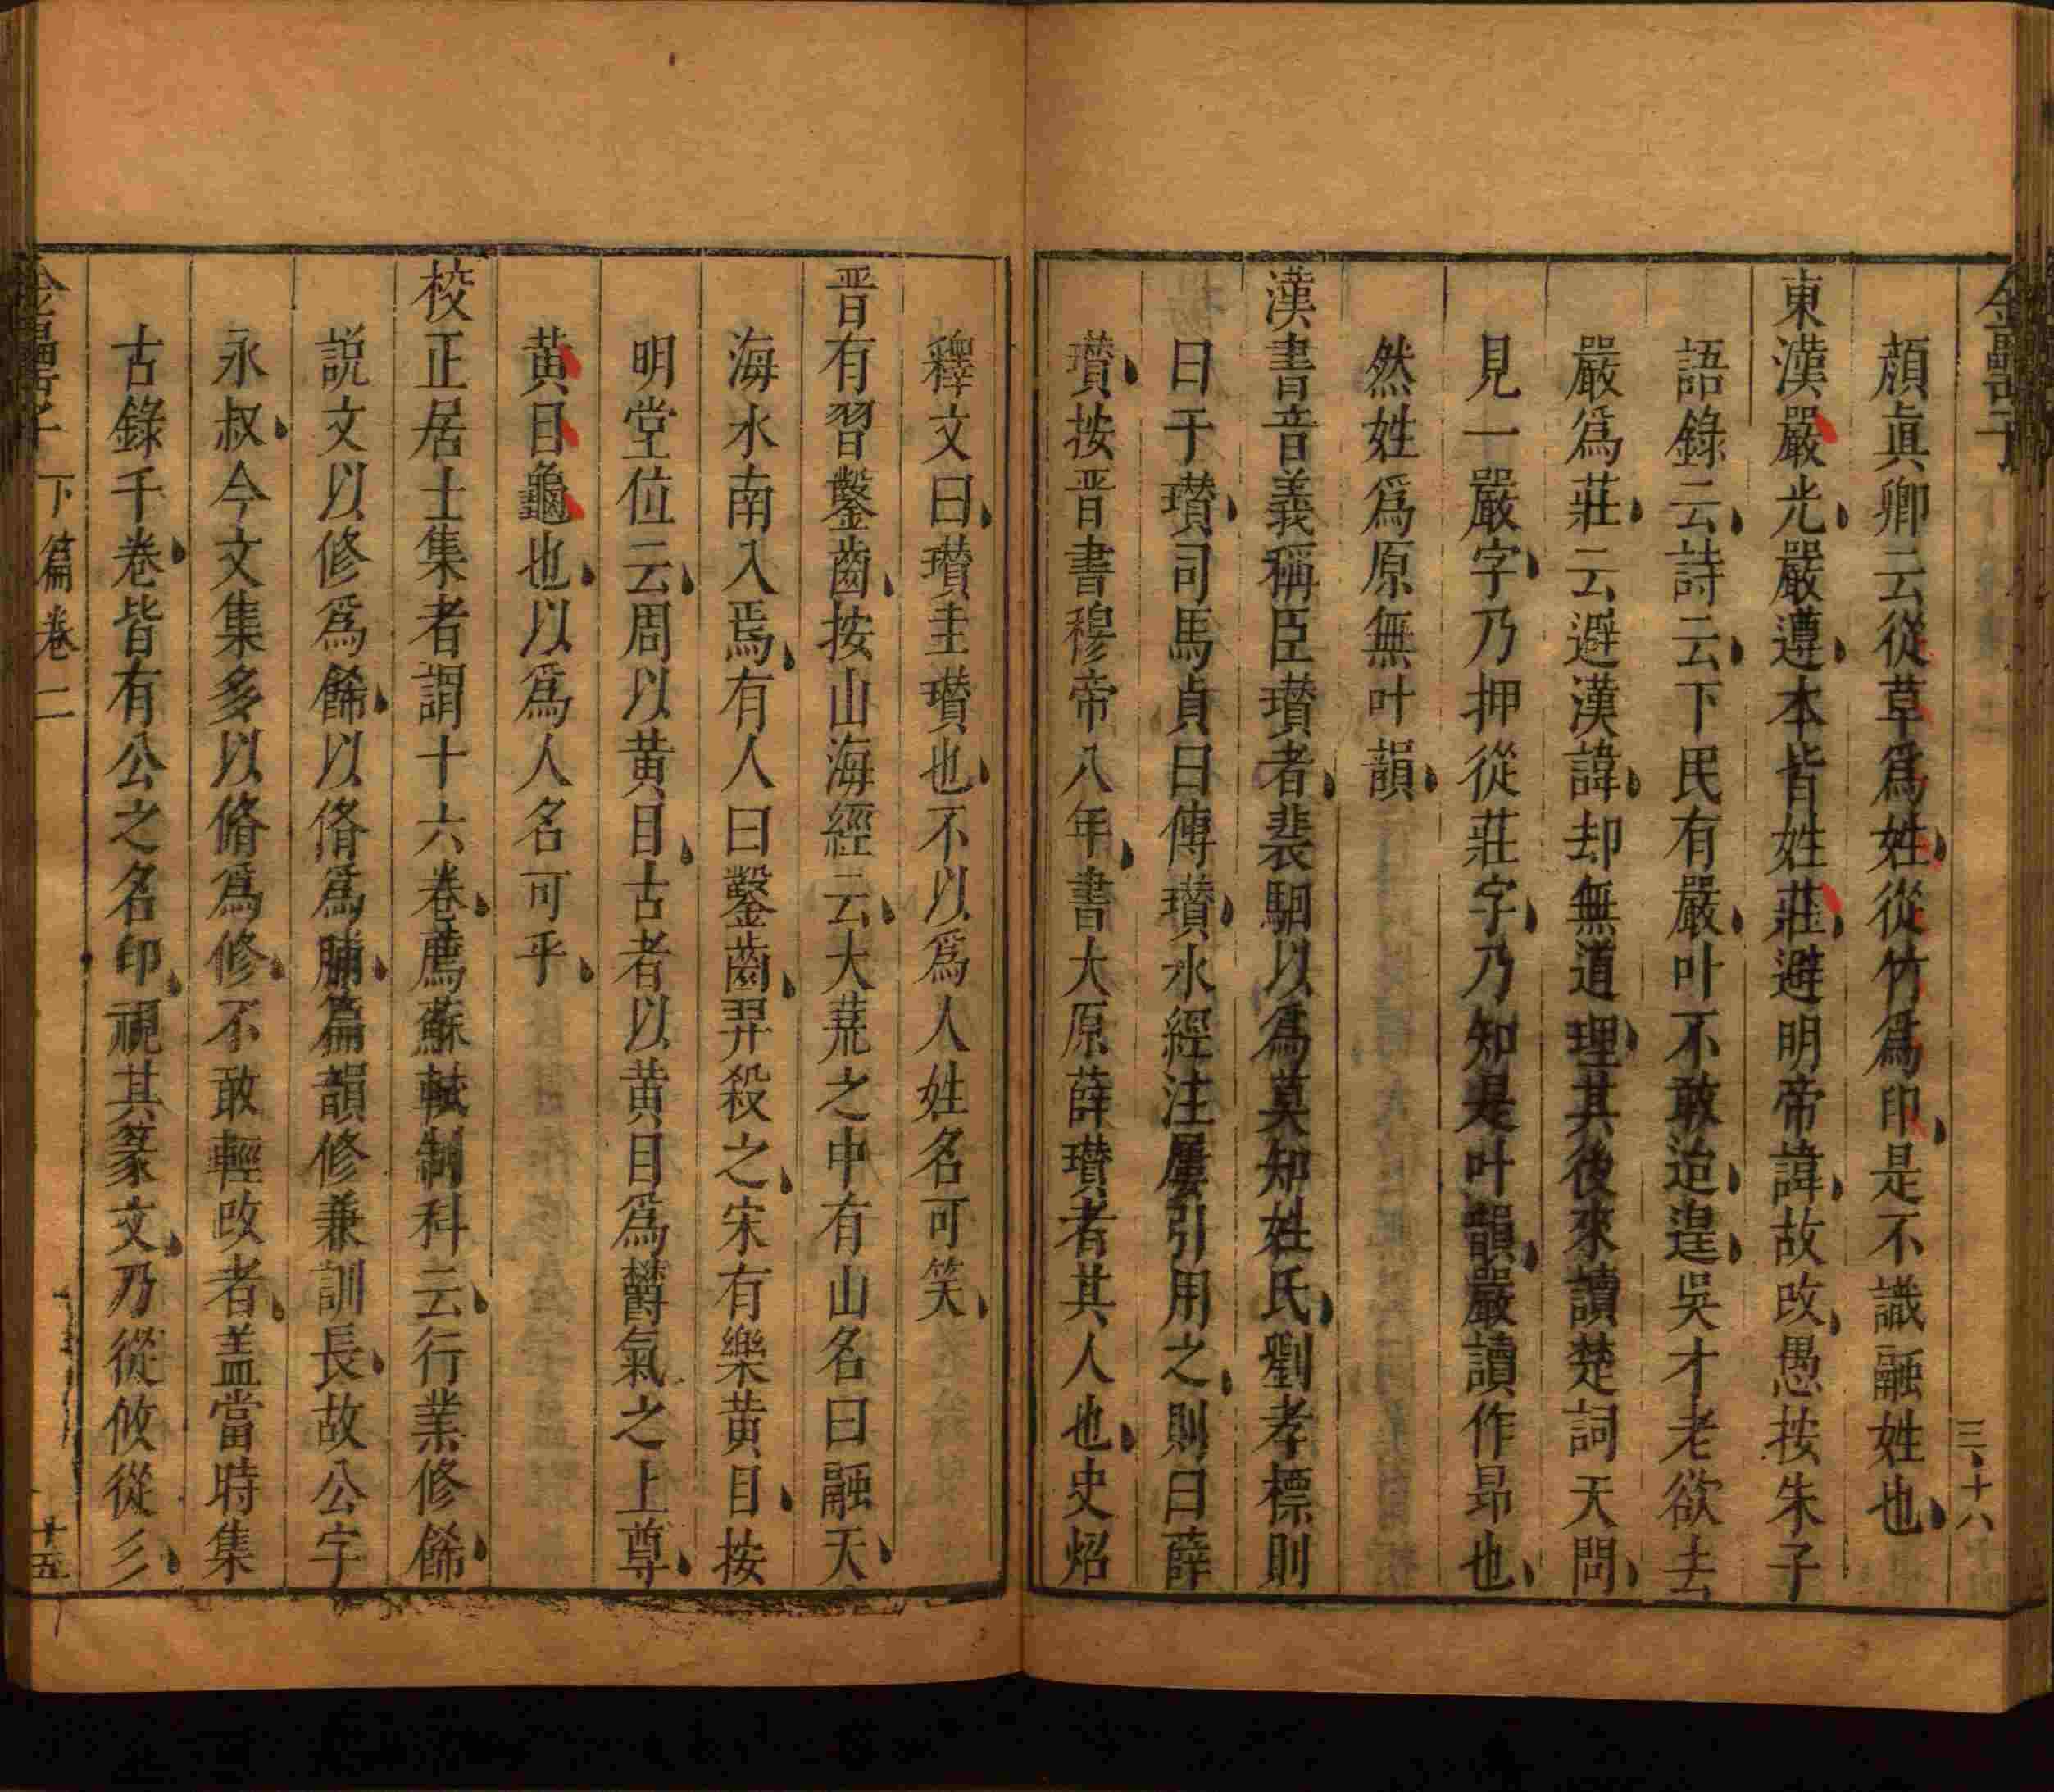 金罍子
三十八
顔眞卿云從草爲姓從竹爲印是不識融姓也
東漢嚴光嚴遵本皆姓莊避明帝諱故改愚按朱子
語錄云詩云下民有嚴叶不敢迨遑吳才老欲去
嚴爲莊云避漢諱却無道理其後來讀楚詞天問
見一嚴字乃押從莊字乃知是叶韻嚴讀作昻也
然姓爲原無叶韻
漢書音義稱臣瓉者裴駰以爲莫知姓氏劉孝標則
曰于瓉司馬貞曰傳瓉水經注屢引用之則曰薛
瓉按晋書穆帝八年書大原薛瓉者其人也史炤
釋文曰瓉圭瓉也不以爲人姓名可笑
晋有習鑿齒按山海經云大荒之中有山名曰融天
海水南入焉有人曰鑿齒羿殺之宋有樂黄目按
明堂位云周以黄目古者以黄目爲欝氣之上尊
黄目龜也以爲人名可乎
校正居士集者謂十六卷薦蘇軾制科云行業修餙
説文以修爲餙以脩爲脯篇韻修兼訓長故公字
永叔今文集多以脩爲修不敢輕改者盖當時集
古錄千卷皆有公之名印視其篆文乃從攸從彡
金罍子
下篇卷二
十五